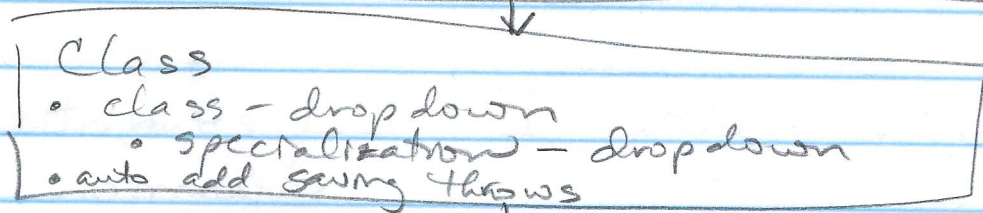 Class
• class - dropdown
• specialization - dropdown
• auto add saving throws